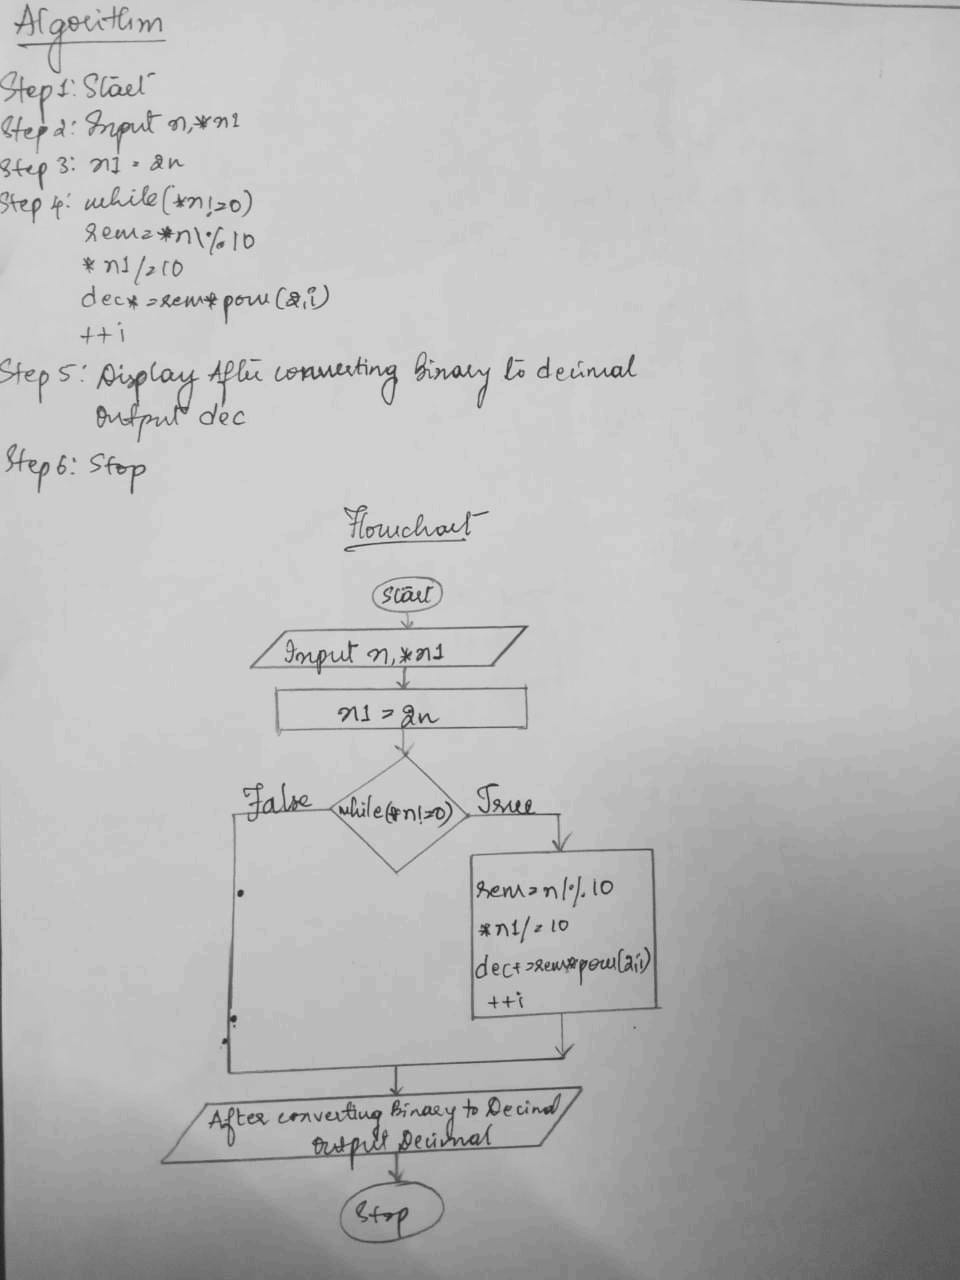 Algorithm
Step 1: Start
Step 2: Input n,*n1
Step 3: n1 = &n
Step 4: while(*n!=0)
rem=*n1%10
*n1/=10
dec+=rem*pow(2,i)
++i
Step 5: Display After converting Binary to decimal
Output dec
Step 6: Stop
Flowchart
Start
Input n,*n1
n1 = &n
False
while(*n!=0)
True
rem=n1%10
*n1/=10
dec+=rem*pow(2,i)
++i
After converting Binary to Decimal
Output Decimal
Stop